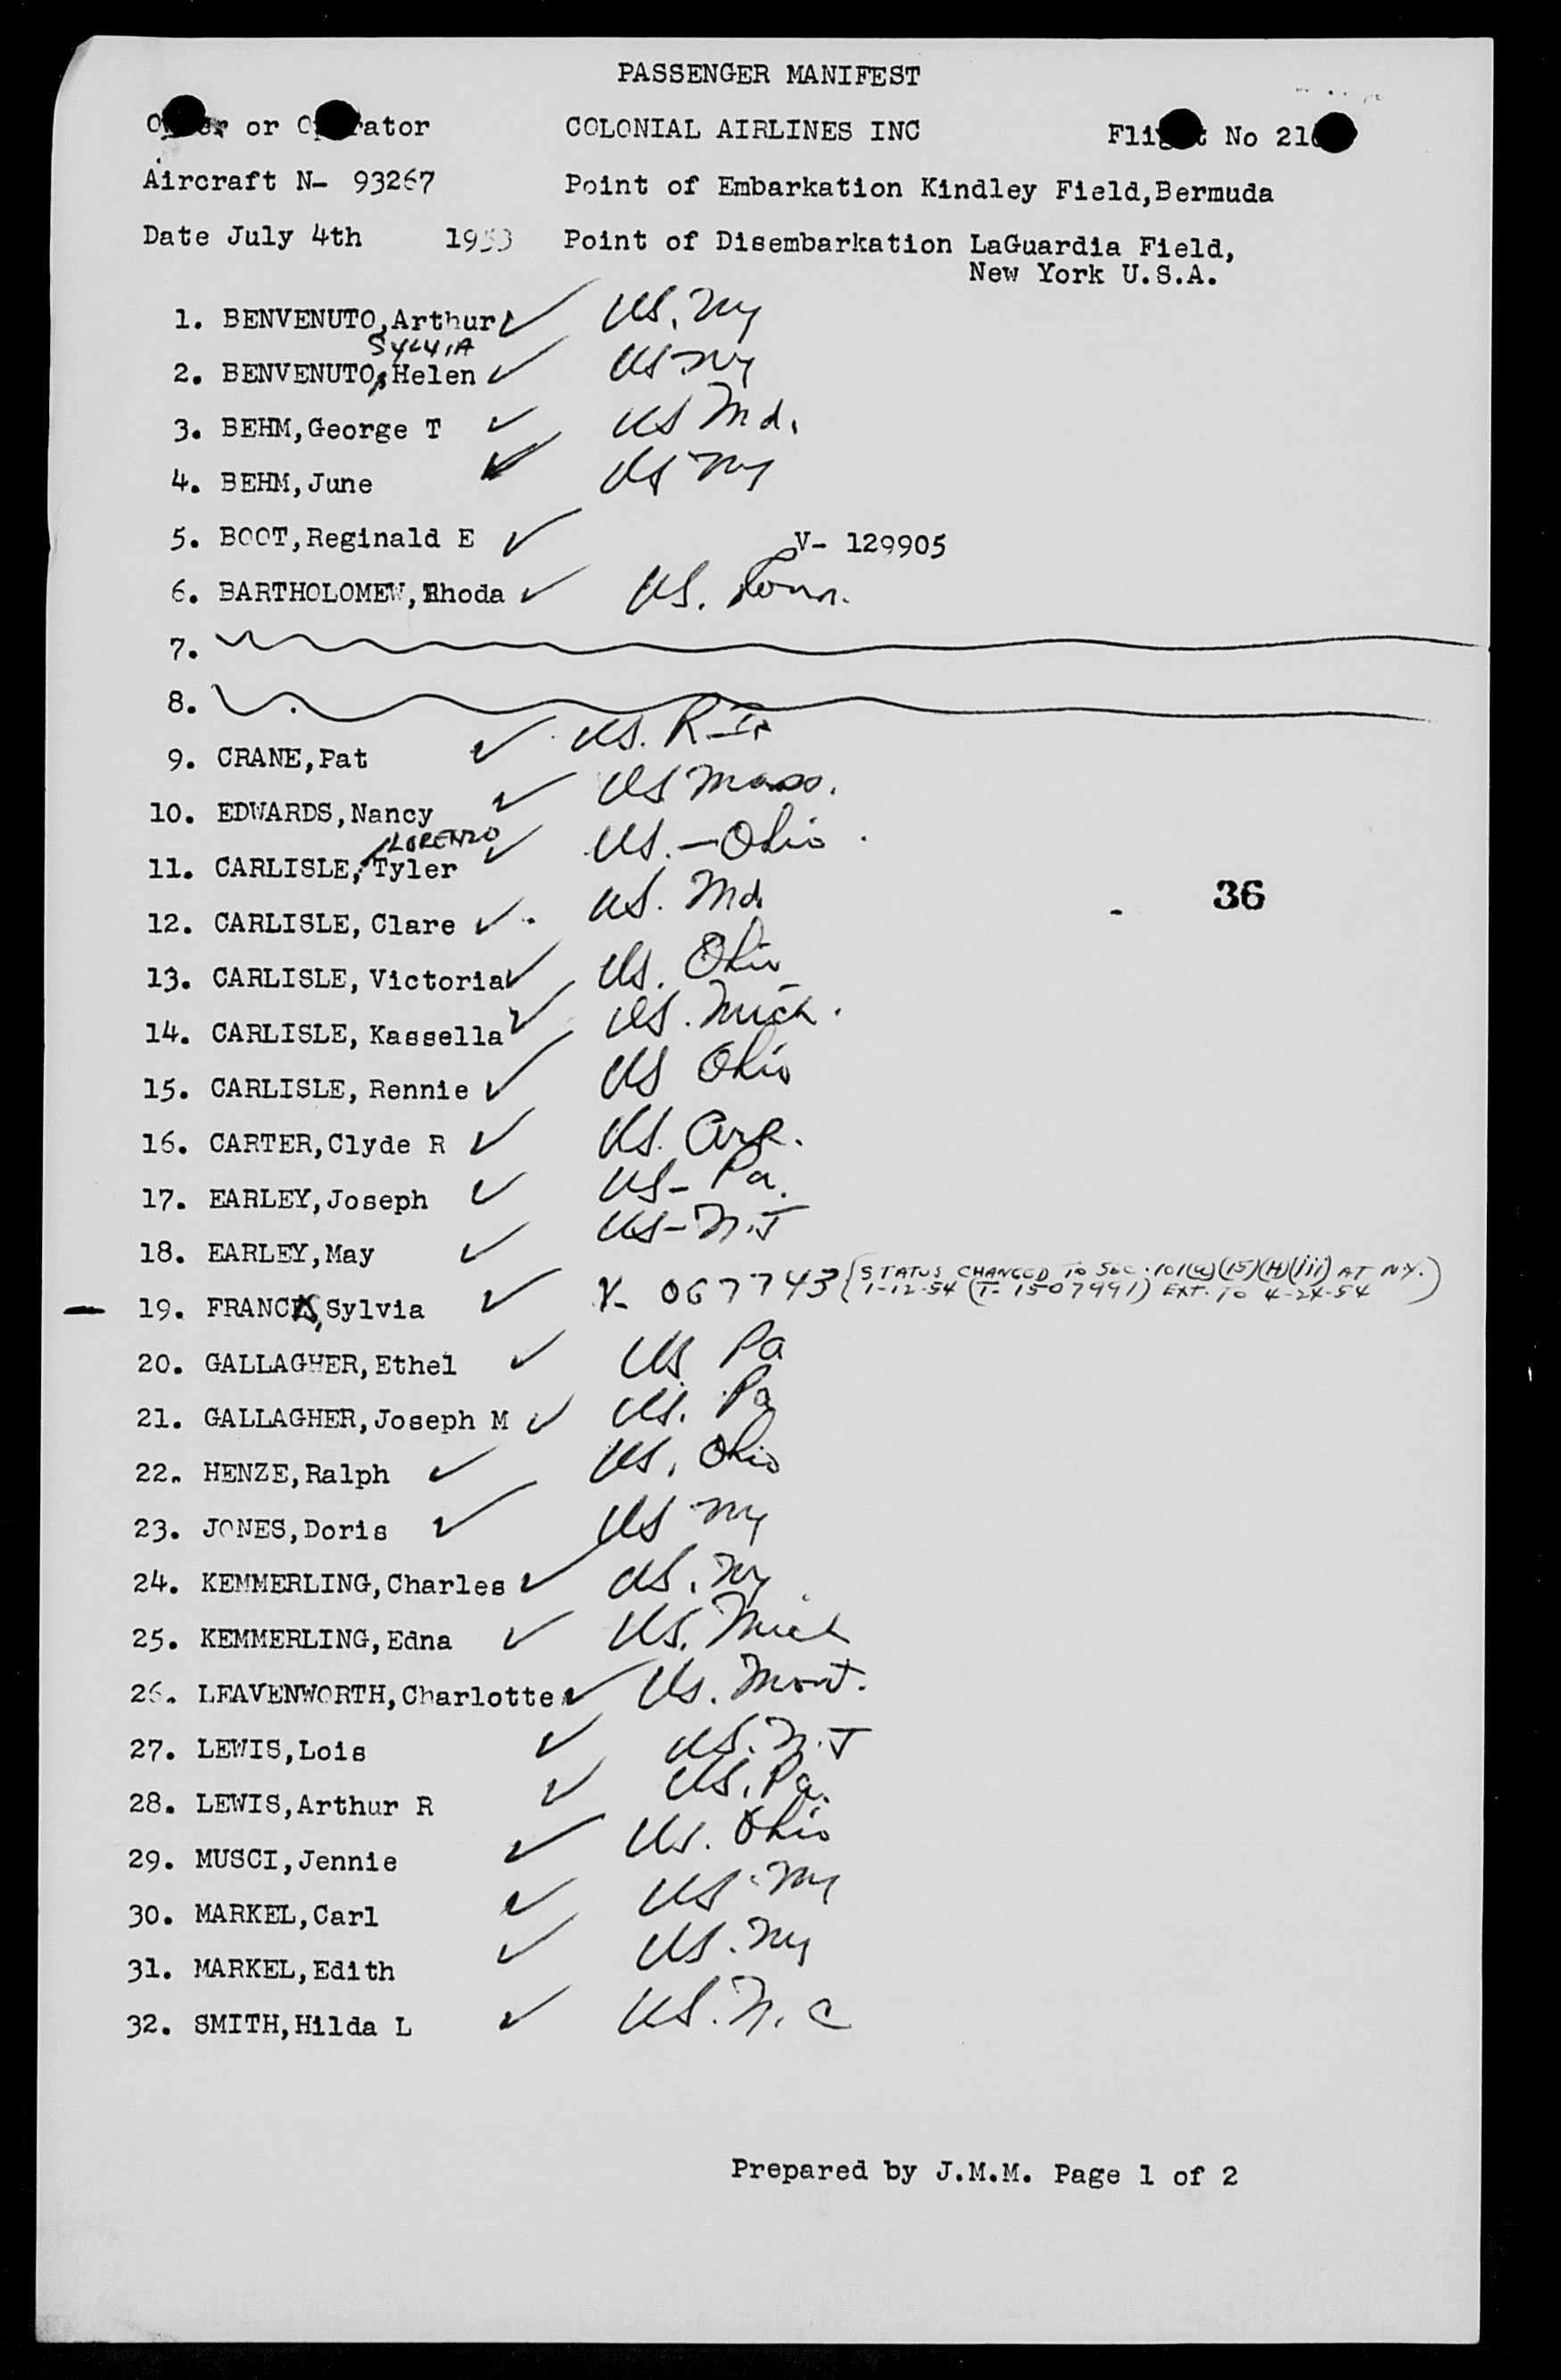 PASSENGER MANIFEST
or COLONIAL AIRLINES INC No
Aircraft N- 93267 Point of Embarkation Kindley Field,Bermuda
Date July 4th 1953 Point of Disembarkation LaGuardia Field,
New York U.S.A.
1. BENVENUTO,Arthur ✓ US. NY
SYLVIA
2. BENVENUTO,Helen ✓ US NY
3. BEHM,George T ✓ US Md.
4. BEHM,June ✓ US NY
5. BOOT,Reginald E ✓ V- 129905
6. BARTHOLOMEW,Rhoda ✓ US. Conn.
7.
8.
9. CRANE,Pat ✓ US. R-I.
10. EDWARDS,Nancy ✓ US Mass.
LORENZO
11. CARLISLE,Tyler ✓ US.-Ohio
12. CARLISLE, Clare ✓ US. Md.
36
13. CARLISLE, Victoria ✓ US. Ohio
14. CARLISLE, Kassella ✓ US. Mich.
15. CARLISLE, Rennie ✓ US Ohio
16. CARTER,Clyde R ✓ US.
17. EARLEY,Joseph ✓ US- Pa.
18. EARLEY,May ✓ US-N.J
19. Sylvia ✓ V- 067743 (STATUS CHANGED TO SEC. 101(a)(15)(H)(iii) AT N.Y.
1-12-54 (T- 1507991) EXT. TO 4-24-54)
20. GALLAGHER,Ethel ✓ US Pa
21. GALLAGHER,Joseph M ✓ US. Pa
22. HENZE,Ralph ✓ US. Ohio
23. JONES,Doris ✓ US NY
24. KEMMERLING,Charles ✓ US. NY
25. KEMMERLING,Edna ✓ US. Mich
26. LEAVENWORTH,Charlotte ✓ US. Mont.
27. LEWIS,Lois ✓ US. N.J
28. LEWIS,Arthur R ✓ US. Pa.
29. MUSCI,Jennie ✓ US. Ohio
30. MARKEL,Carl ✓ US NY
31. MARKEL,Edith ✓ US. NY
32. SMITH,Hilda L ✓ US. N. C
Prepared by J.M.M. Page 1 of 2